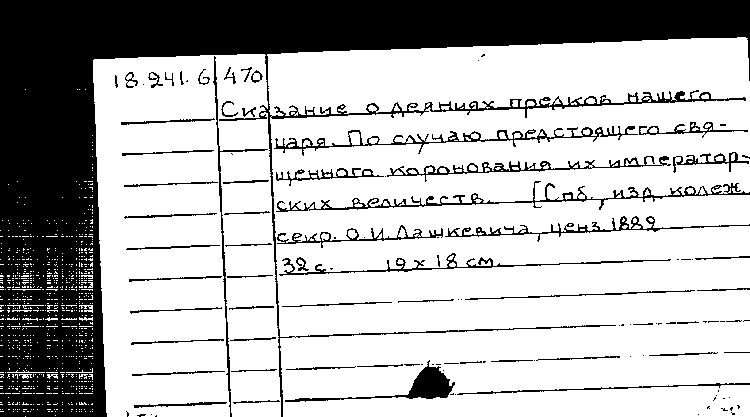 18.241.6.470
Сказание о деяниях предков нашего
царя. По случаю предстоящего свя-
щенного коронования их император-
ских величеств. [Спб., изд. колеж.
секр. О.И. Лашкевича, ценз. 1882
32 с. 12 x 18 см.